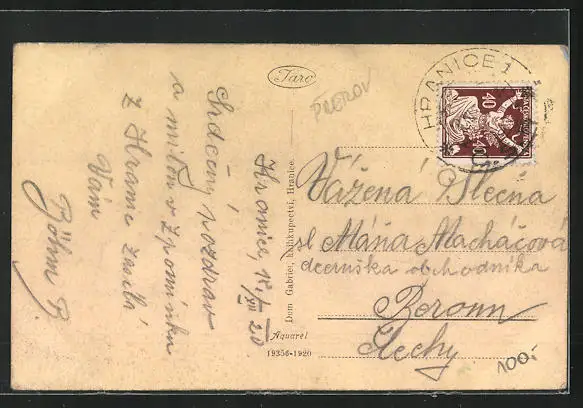 Taro
PŘEROV
HRANICE 1
40
40
Srdečný pozdrav
a milou vzpomínku
z Hranic zasílá
Vám
Böhm P.
Hranice, 15/VII 20
Dom Gabriel, knihkupectví, Hranice.
Aquarel
19356-1920
Vážená Slečna
sl. Máňa Macháčová
dceruška obchodníka
Beroun
Čechy
100.-